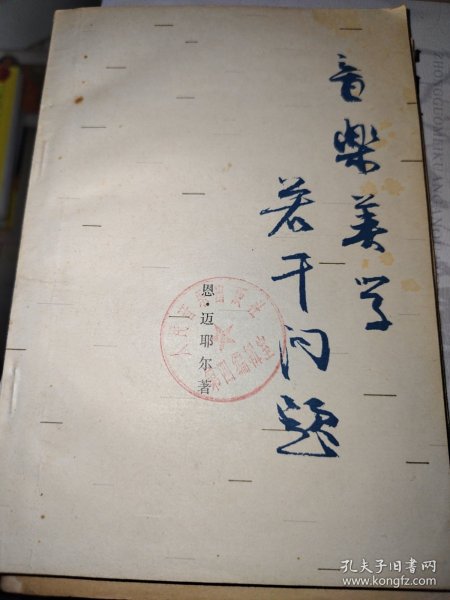 音樂美学
若干问题
恩·迈耶尔著
人民音乐出版社
第四编辑室
ZHONGGUOMEIKUANG
孔夫子旧书网
www.kongfz.com